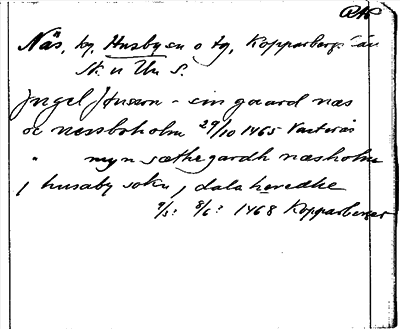 RA
Näs, by, Husby sn o tg, Kopparbergs län
St. u Un S.
Jngel Jönsson - ein gaard næs
oc næssboholm 29/10 1465 Västerås
" myn sæthegardh næsholm
j husaby sokn, j dala heredhe
9/5? 8/6? 1468 Kopparberget